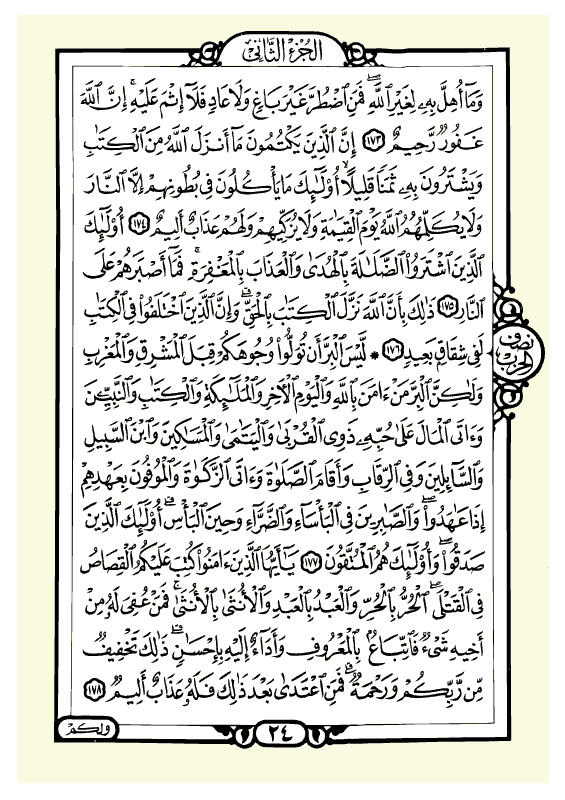 الجزء الثاني
وَمَآ أُهِلَّ بِهِۦ لِغَيْرِ ٱللَّهِۖ فَمَنِ ٱضْطُرَّ غَيْرَ بَاغٍ وَلَا عَادٍ فَلَآ إِثْمَ عَلَيْهِۚ إِنَّ ٱللَّهَ
غَفُورٌ رَّحِيمٌ ١٧٣ إِنَّ ٱلَّذِينَ يَكْتُمُونَ مَآ أَنزَلَ ٱللَّهُ مِنَ ٱلْكِتَٰبِ
وَيَشْتَرُونَ بِهِۦ ثَمَنًا قَلِيلًاۙ أُو۟لَٰٓئِكَ مَا يَأْكُلُونَ فِى بُطُونِهِمْ إِلَّا ٱلنَّارَ
وَلَا يُكَلِّمُهُمُ ٱللَّهُ يَوْمَ ٱلْقِيَٰمَةِ وَلَا يُزَكِّيهِمْ وَلَهُمْ عَذَابٌ أَلِيمٌ ١٧٤ أُو۟لَٰٓئِكَ
ٱلَّذِينَ ٱشْتَرَوُا۟ ٱلضَّلَٰلَةَ بِٱلْهُدَىٰ وَٱلْعَذَابَ بِٱلْمَغْفِرَةِۚ فَمَآ أَصْبَرَهُمْ عَلَى
ٱلنَّارِ ١٧٥ ذَٰلِكَ بِأَنَّ ٱللَّهَ نَزَّلَ ٱلْكِتَٰبَ بِٱلْحَقِّۗ وَإِنَّ ٱلَّذِينَ ٱخْتَلَفُوا۟ فِى ٱلْكِتَٰبِ
لَفِى شِقَاقٍۭ بَعِيدٍ ١٧٦ * لَّيْسَ ٱلْبِرَّ أَن تُوَلُّوا۟ وُجُوهَكُمْ قِبَلَ ٱلْمَشْرِقِ وَٱلْمَغْرِبِ
نصف الحزب
وَلَٰكِنَّ ٱلْبِرَّ مَنْ ءَامَنَ بِٱللَّهِ وَٱلْيَوْمِ ٱلْءَاخِرِ وَٱلْمَلَٰٓئِكَةِ وَٱلْكِتَٰبِ وَٱلنَّبِيِّۦنَ
وَءَاتَى ٱلْمَالَ عَلَىٰ حُبِّهِۦ ذَوِى ٱلْقُرْبَىٰ وَٱلْيَتَٰمَىٰ وَٱلْمَسَٰكِينَ وَٱبْنَ ٱلسَّبِيلِ
وَٱلسَّآئِلِينَ وَفِى ٱلرِّقَابِ وَأَقَامَ ٱلصَّلَوٰةَ وَءَاتَى ٱلزَّكَوٰةَ وَٱلْمُوفُونَ بِعَهْدِهِمْ
إِذَا عَٰهَدُوا۟ۖ وَٱلصَّٰبِرِينَ فِى ٱلْبَأْسَآءِ وَٱلضَّرَّآءِ وَحِينَ ٱلْبَأْسِۗ أُو۟لَٰٓئِكَ ٱلَّذِينَ
صَدَقُوا۟ۖ وَأُو۟لَٰٓئِكَ هُمُ ٱلْمُتَّقُونَ ١٧٧ يَٰٓأَيُّهَا ٱلَّذِينَ ءَامَنُوا۟ كُتِبَ عَلَيْكُمُ ٱلْقِصَاصُ
فِى ٱلْقَتْلَىۖ ٱلْحُرُّ بِٱلْحُرِّ وَٱلْعَبْدُ بِٱلْعَبْدِ وَٱلْأُنثَىٰ بِٱلْأُنثَىٰۚ فَمَنْ عُفِىَ لَهُۥ مِنْ
أَخِيهِ شَىْءٌ فَٱتِّبَاعٌۢ بِٱلْمَعْرُوفِ وَأَدَآءٌ إِلَيْهِ بِإِحْسَٰنٍۗ ذَٰلِكَ تَخْفِيفٌ
مِّن رَّبِّكُمْ وَرَحْمَةٌۗ فَمَنِ ٱعْتَدَىٰ بَعْدَ ذَٰلِكَ فَلَهُۥ عَذَابٌ أَلِيمٌ ١٧٨
٢٤
ولكم